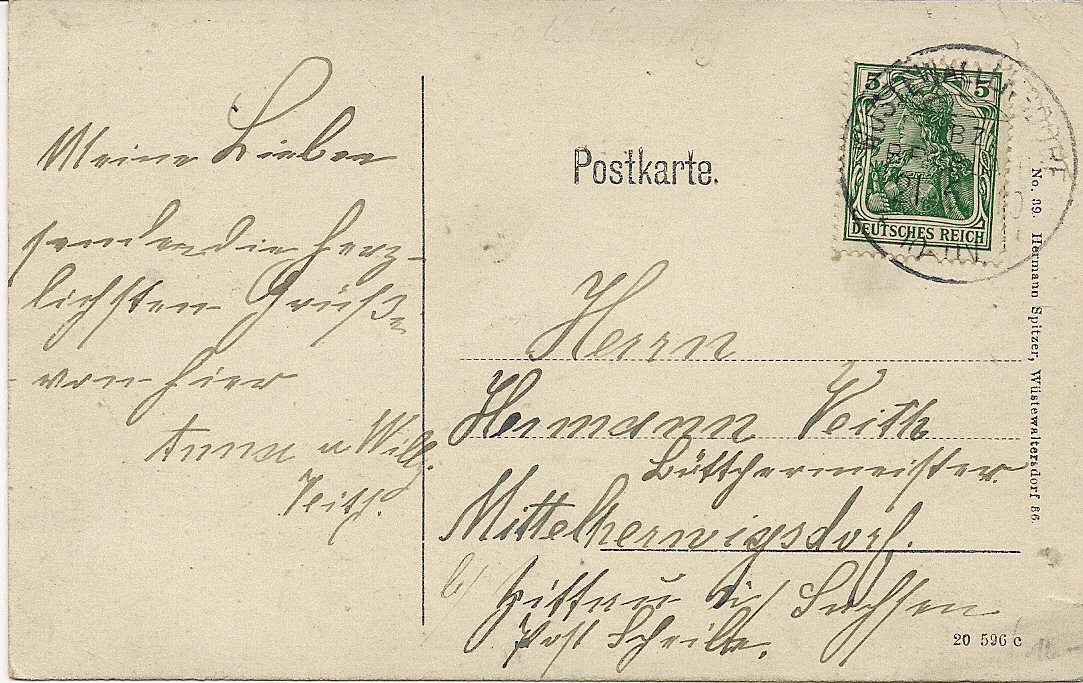 Meine Lieben
senden die herz-
lichsten Grüße
von hier
Anna u Wilh.
Veith.
Postkarte.
5 5
DEUTSCHES REICH
WÜSTEWALTERSDORF
Herrn
Hermann Veith
Böttchermeister.
Mittelherwigsdorf.
b/ Zittau i/ Sachsen
Post Scheibe.
No. 39. Hermann Spitzer, Wüstewaltersdorf 86.
20 596 c